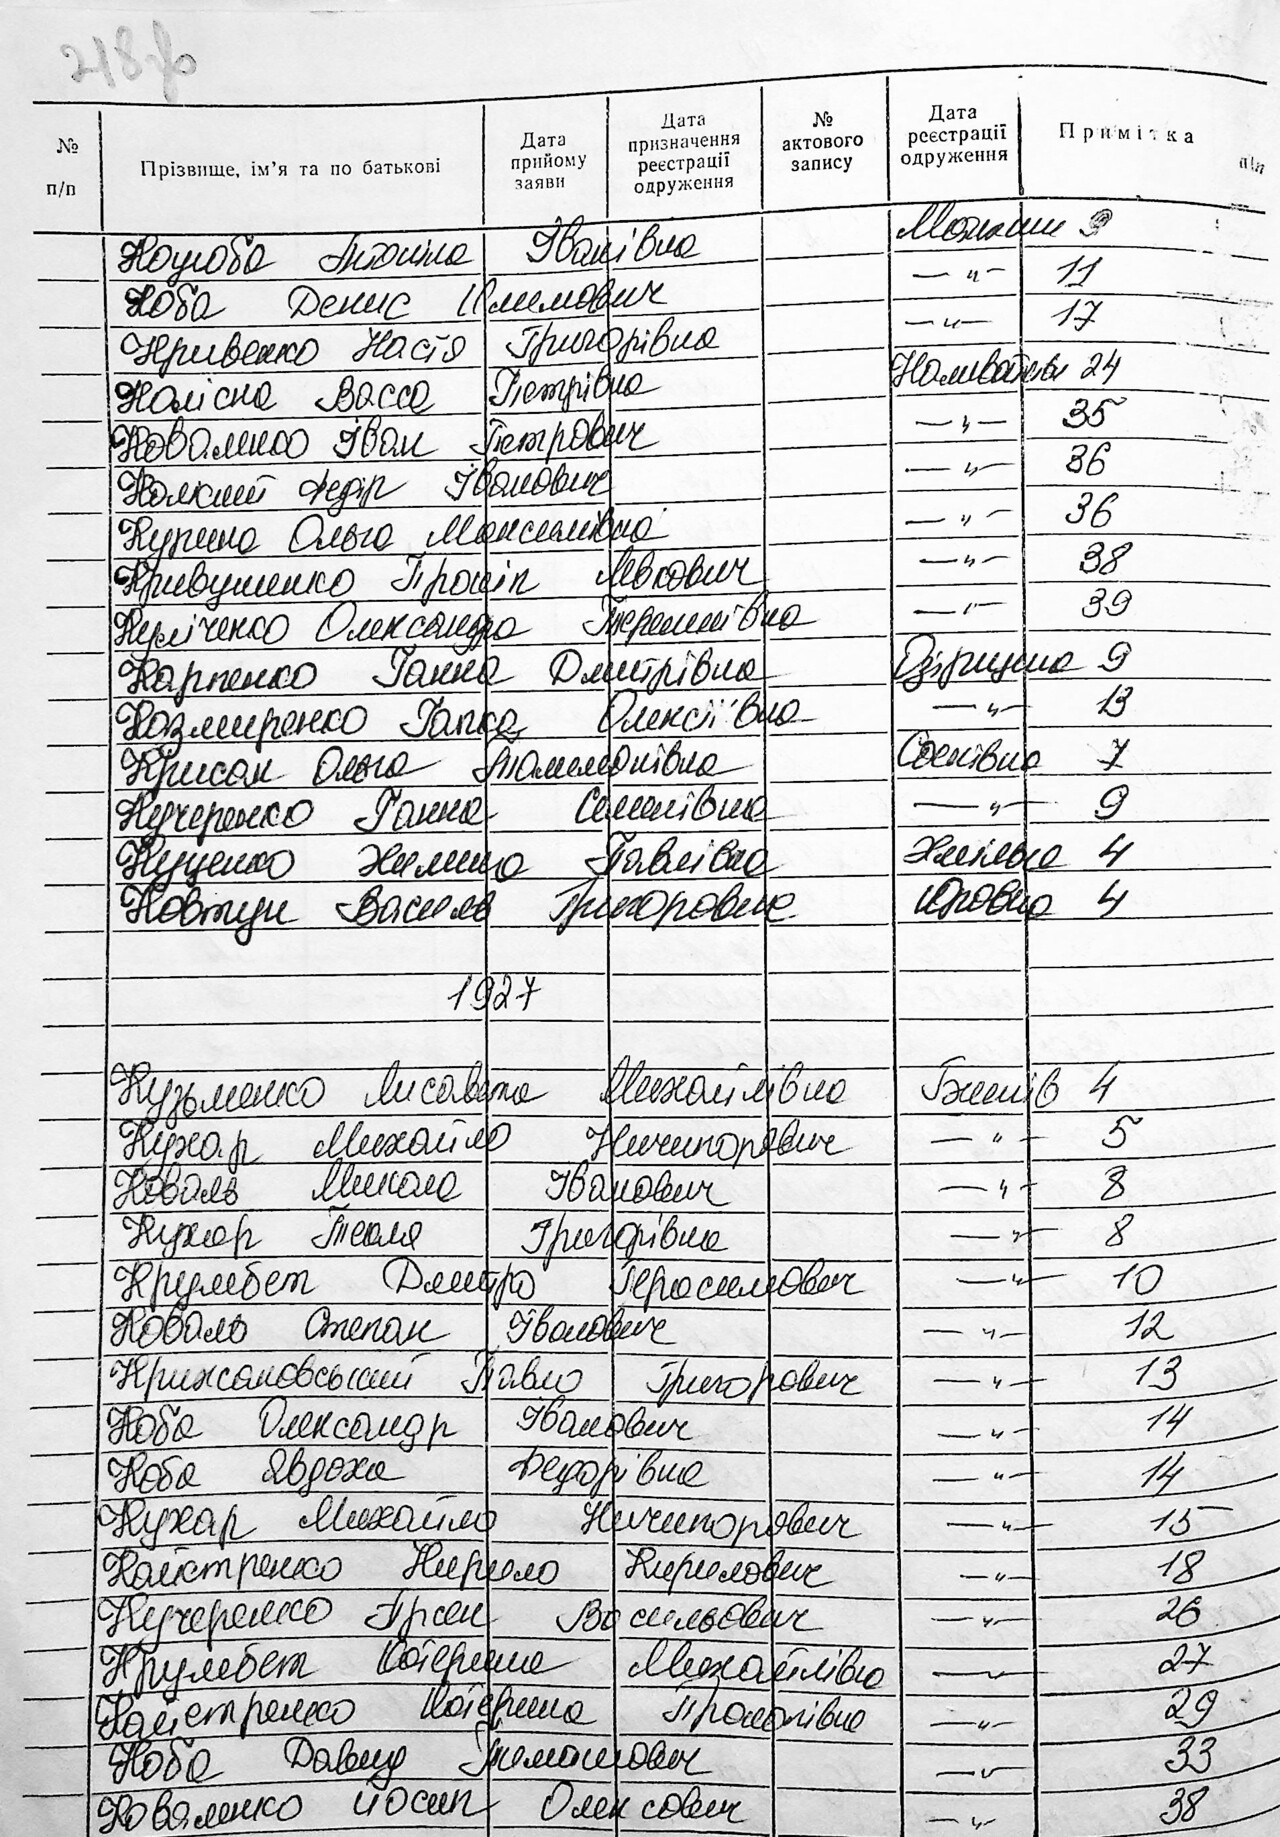 № п/п Прізвище, ім'я та по батькові Дата прийому заяви Дата призначення реєстрації одруження № актового запису Дата реєстрації одруження Примітка п/п
Іванівна 9
Коба Денис Климович — " — 11
Кривенко Настя Григорівна — " — 17
Колісна Васса Петрівна 24
Коваленко Іван Петрович — " — 35
Федір Іванович — " — 36
Ольга Максимівна — " — 36
Кривущенко Прокіп — " — 38
Олександра — " — 39
Карпенко Ганна Дмитрівна 9
Казмиренко Гапка Олексіївна — " — 13
Крисан Ольга 7
Кучеренко Ганна Семенівна — " — 9
Куценко Павлівна 4
Ковтун Василь Григорович Юровка 4
1927
Кузьменко Лисавета Михайлівна Бженів 4
Кухар Михайло Ничипорович — " — 5
Коваль Микола Іванович — " — 8
Кухар Текля Григорівна — " — 8
Крумбет Дмитро Герасимович — " — 10
Коваль Степан Іванович — " — 12
Крижановський Павло Григорович — " — 13
Коба Олександр Іванович — " — 14
Коба Явдоха Федорівна — " — 14
Кухар Михайло Ничипорович — " — 15
Кайстренко Кирило Кирилович — " — 18
Кучеренко Арсен Васильович — " — 26
Крумбет Катерина Михайлівна — " — 27
Кайстренко Катерина — " — 29
Коба Давид — " — 33
Коваленко Йосип Олексович — " — 38